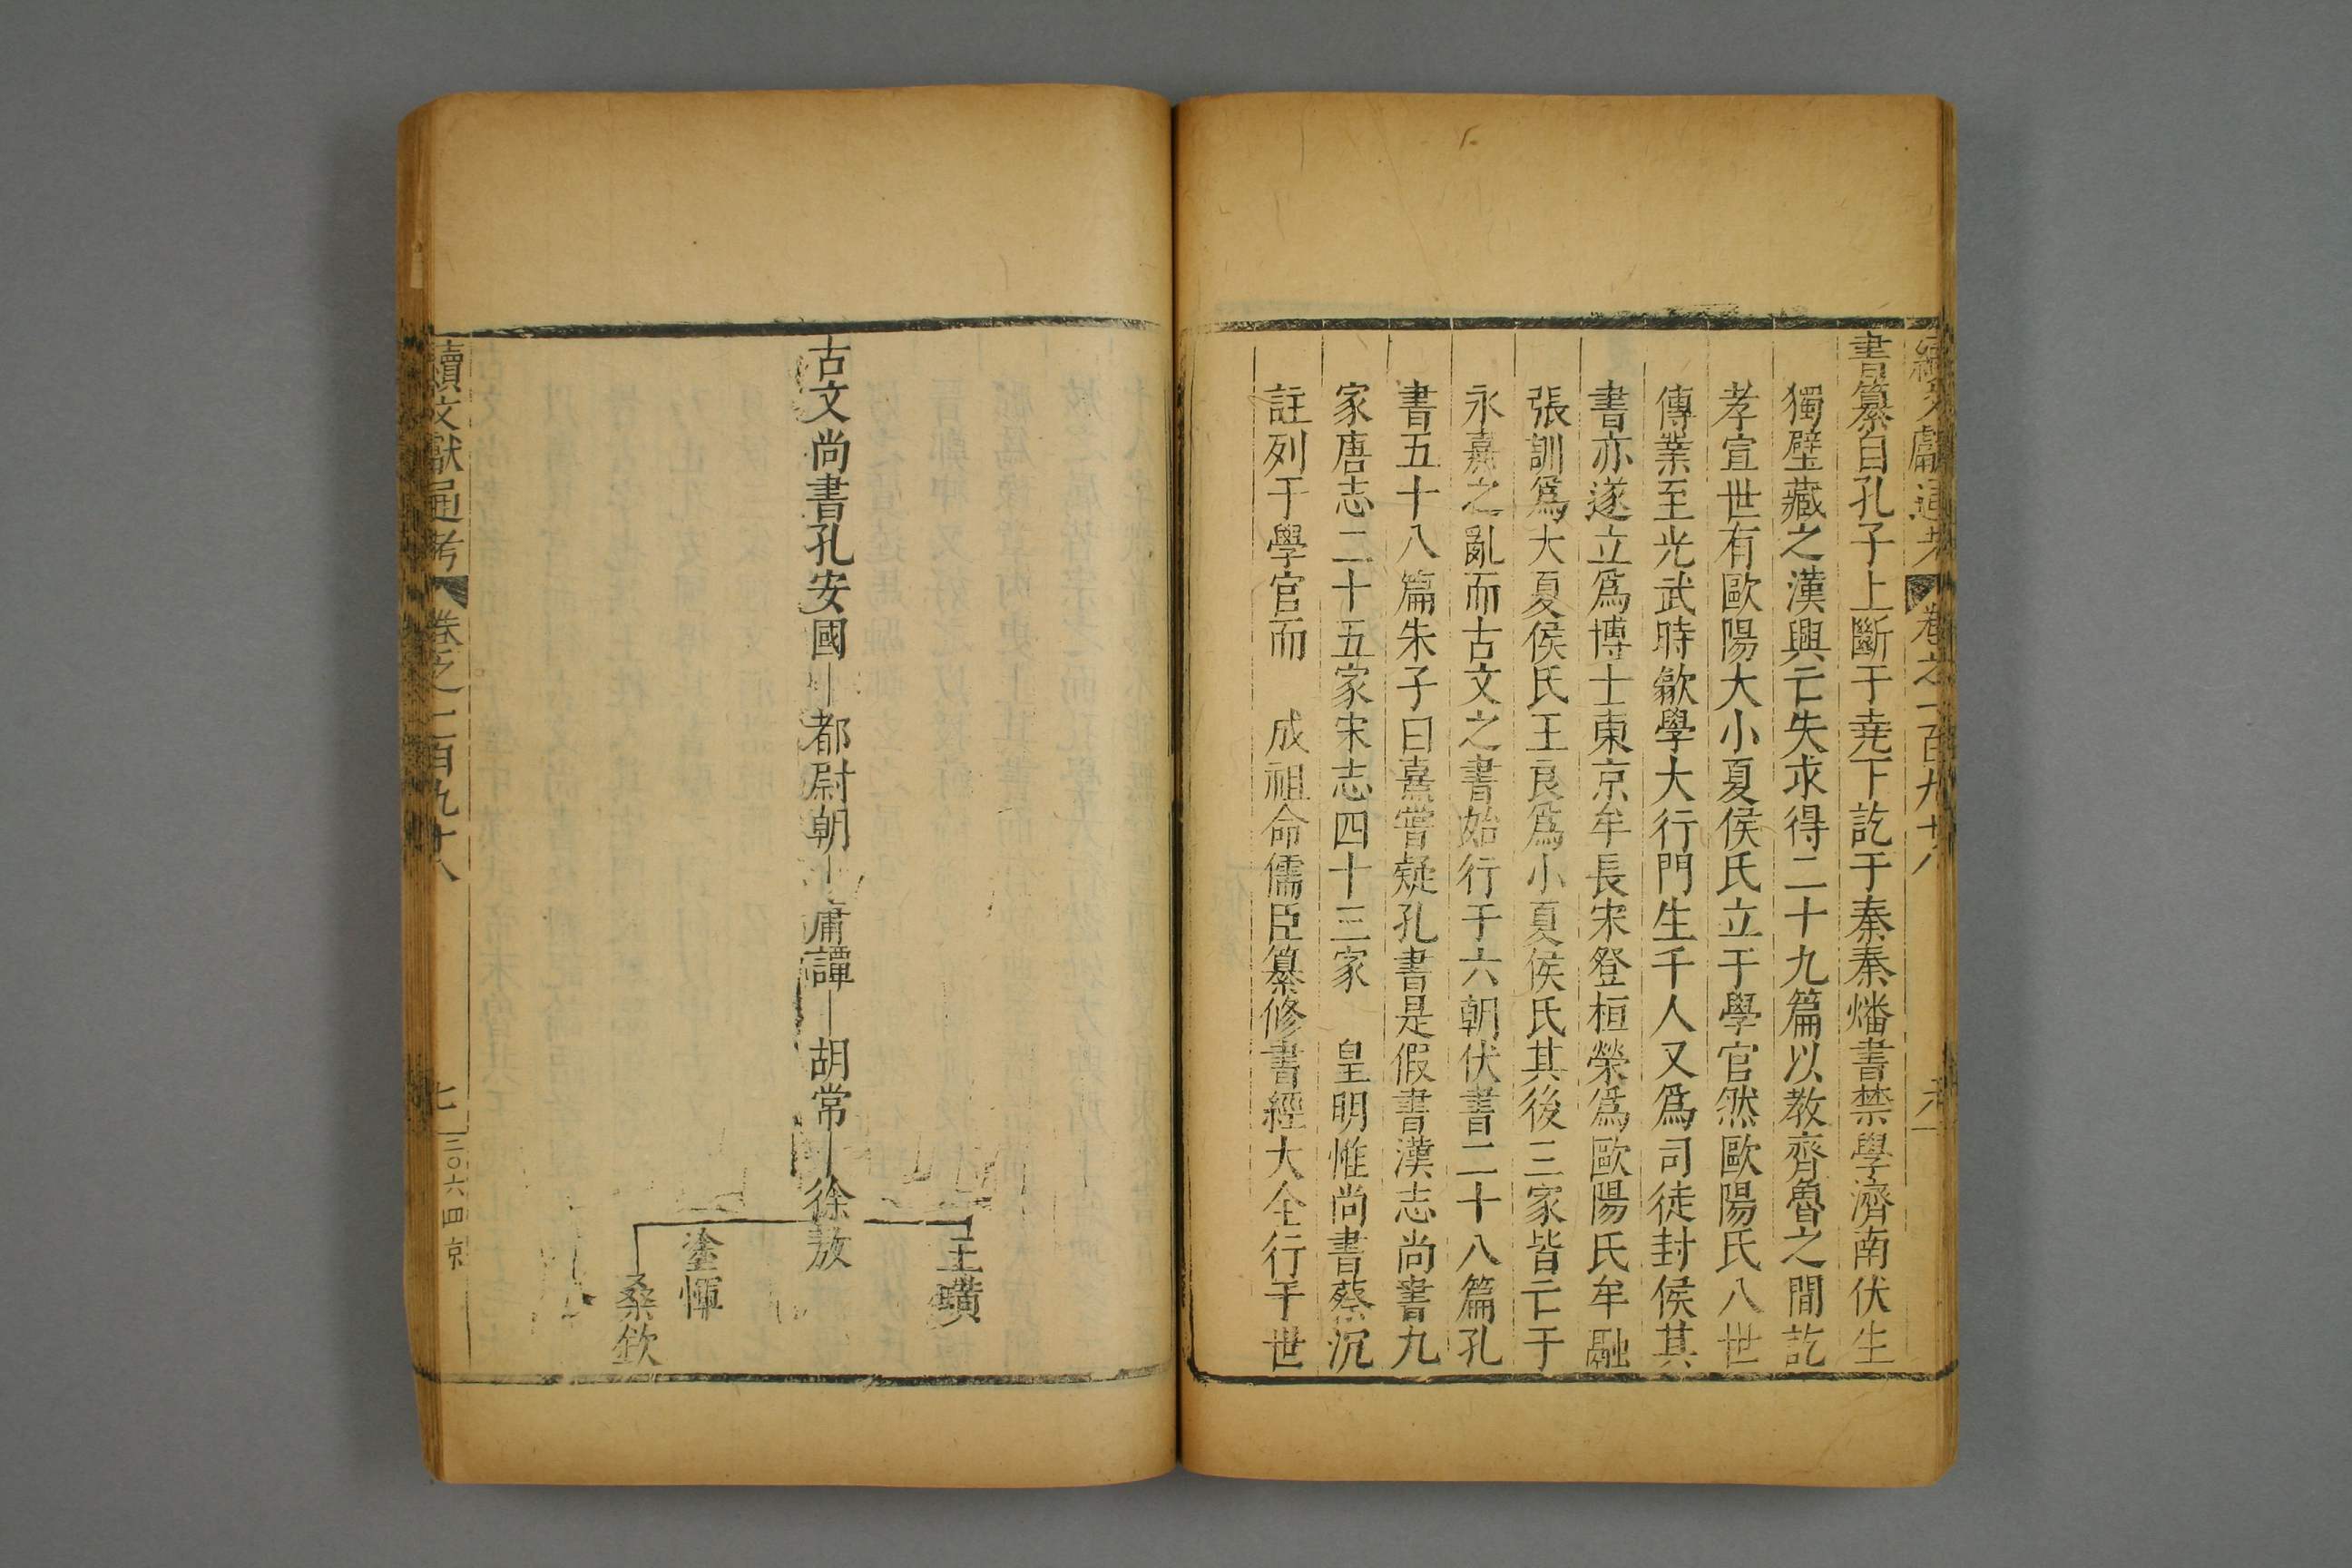 續文獻通考 卷之一百九十八
書纂自孔子上斷于堯下訖于秦秦燔書禁學濟南伏生
獨壁藏之漢興亡失求得二十九篇以教齊魯之間訖
孝宣世有歐陽大小夏侯氏立于學官然歐陽氏八世
傳業至光武時歙學大行門生千人又爲司徒封侯其
書亦遂立爲博士東京牟長宋登桓榮爲歐陽氏牟融
張訓爲大夏侯氏王良爲小夏侯氏其後三家皆亡于
永嘉之亂而古文之書始行于六朝伏書二十八篇孔
書五十八篇朱子曰熹嘗疑孔書是假書漢志尚書九
家唐志二十五家宋志四十三家 皇明惟尚書蔡沉
註列于學官而 成祖命儒臣纂修書經大全行于世
王璜
古文尚書孔安國 都尉朝 庸譚 胡常 徐敖
塗惲
桑欽
續文獻通考 卷之一百九十八 七 三〇六四 京